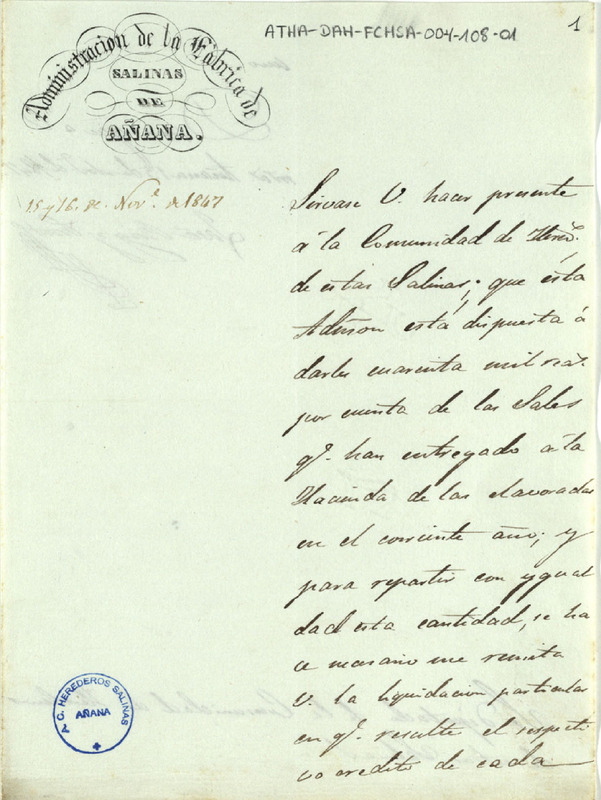 ATHA-DAH-FCHSA-004-108-01
1
Administracion de la Fábrica de
SALINAS
DE
AÑANA.
15 y 16. de Nov.e de 1847
Sirvase V. hacer presente
á la Comunidad de Hered.s
de estas Salinas; que esta
Admon está dispuesta á
darles cuarenta mil rea.s
por cuenta de las Sales
q.e han entregado á la
Hacienda de las elavoradas
en el corriente año; y
para repartir con ygual
dad esta cantidad, se ha
ce necesario me remita
V. la liquidacion particular
en q.e resulte el respecti
vo credito de cada
C. HEREDEROS SALINAS
AÑANA